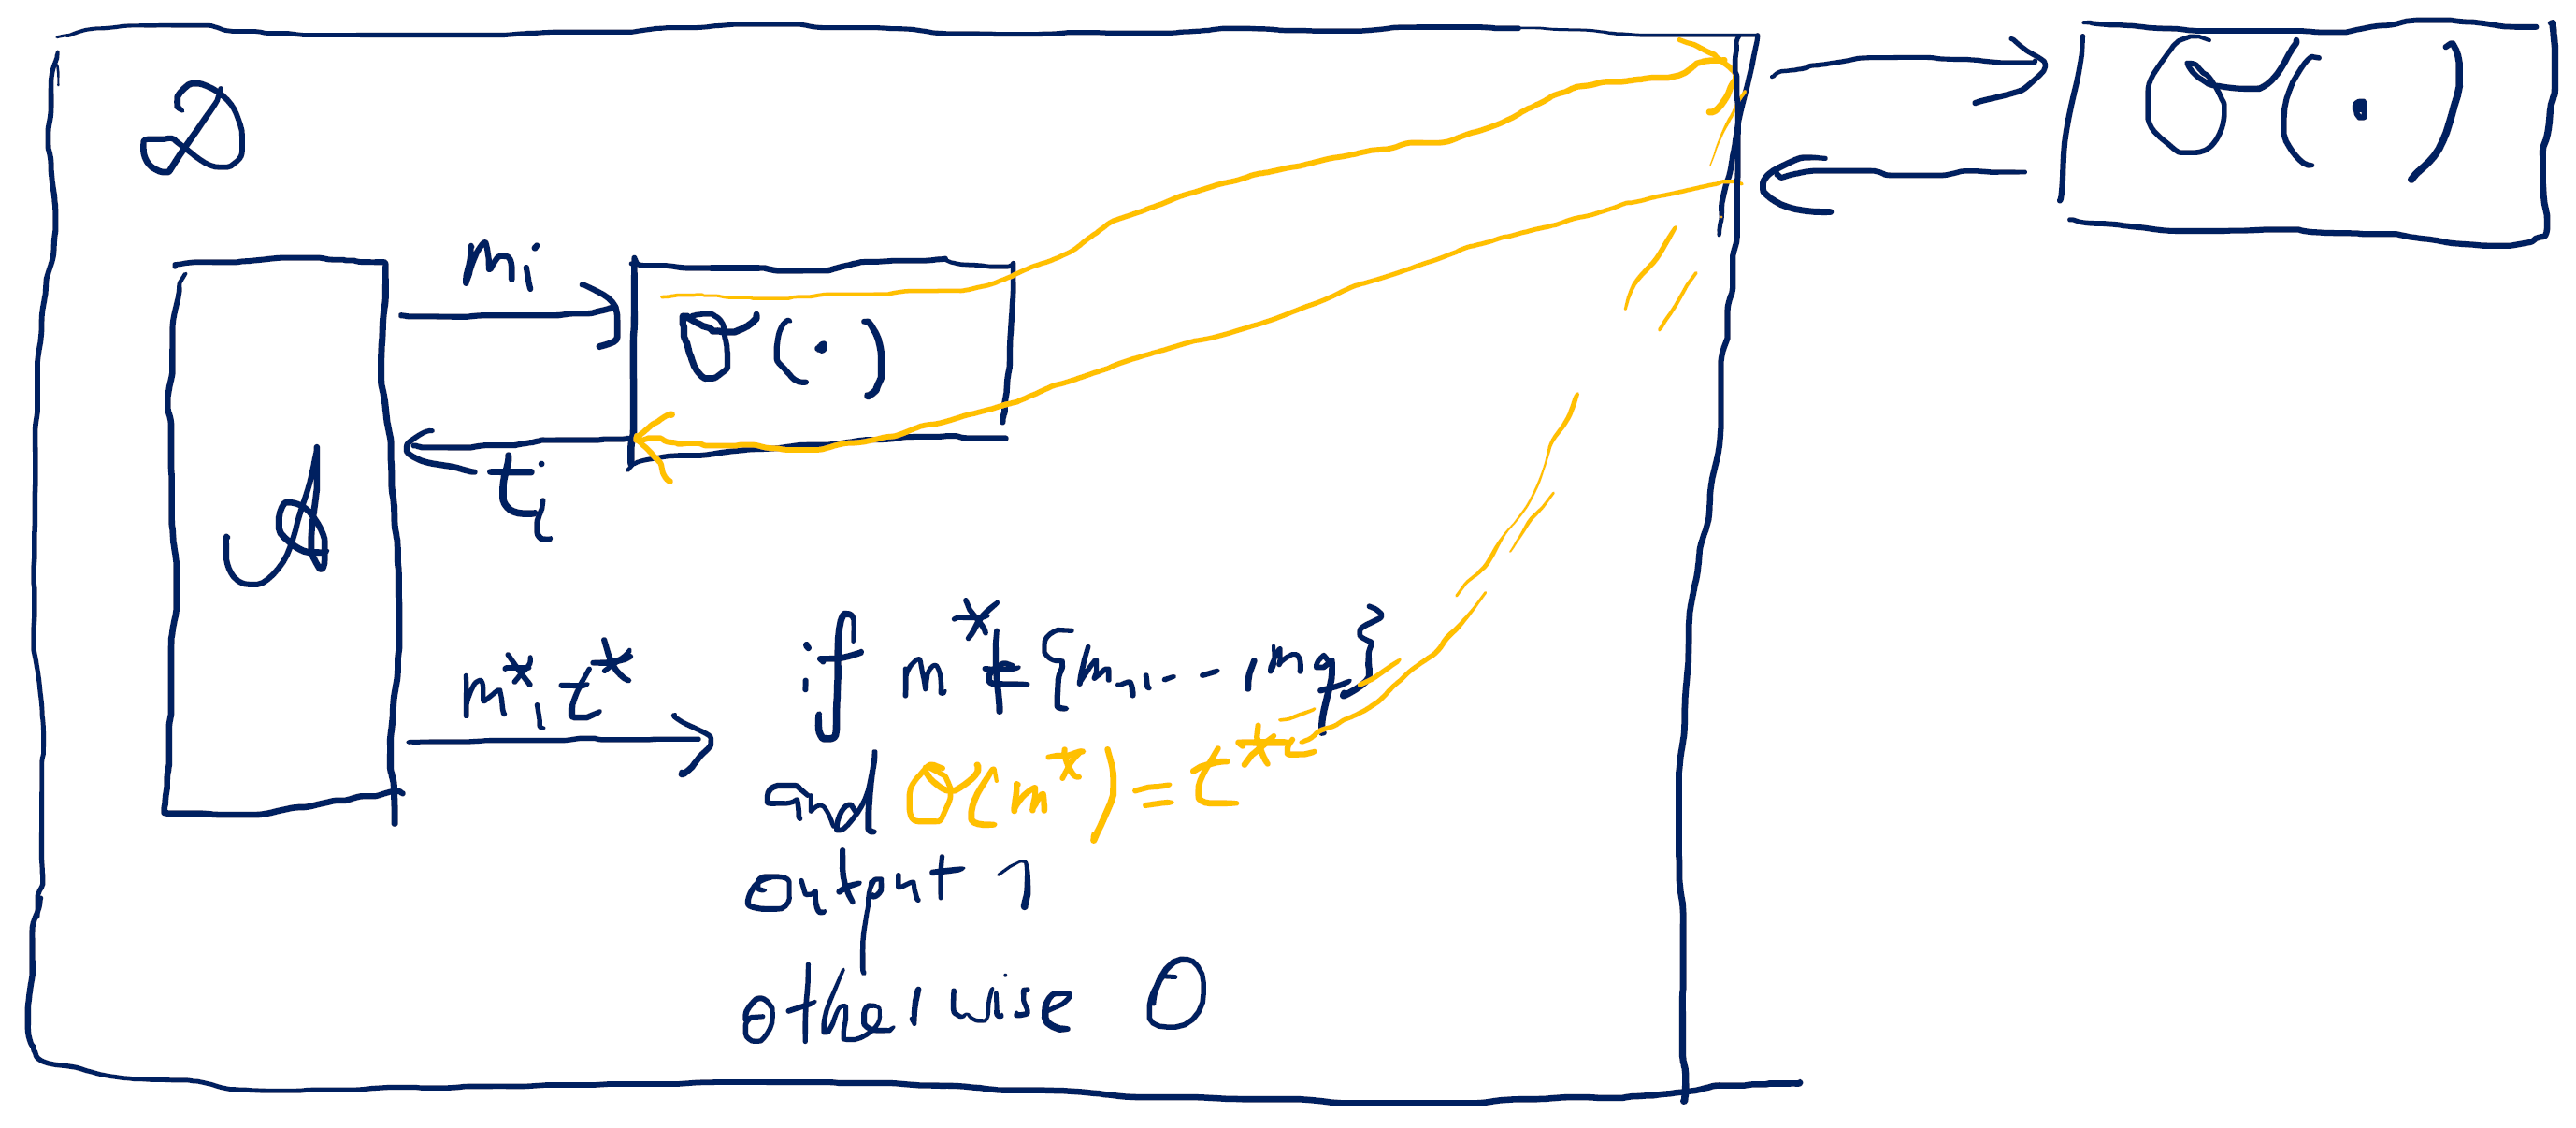 𝒟
O(·)
m_i
O(·)
t_i
A
m*, t*
if m* ∉ {m_1, ..., m_q}
and O(m*) = t*
output 1
otherwise 0